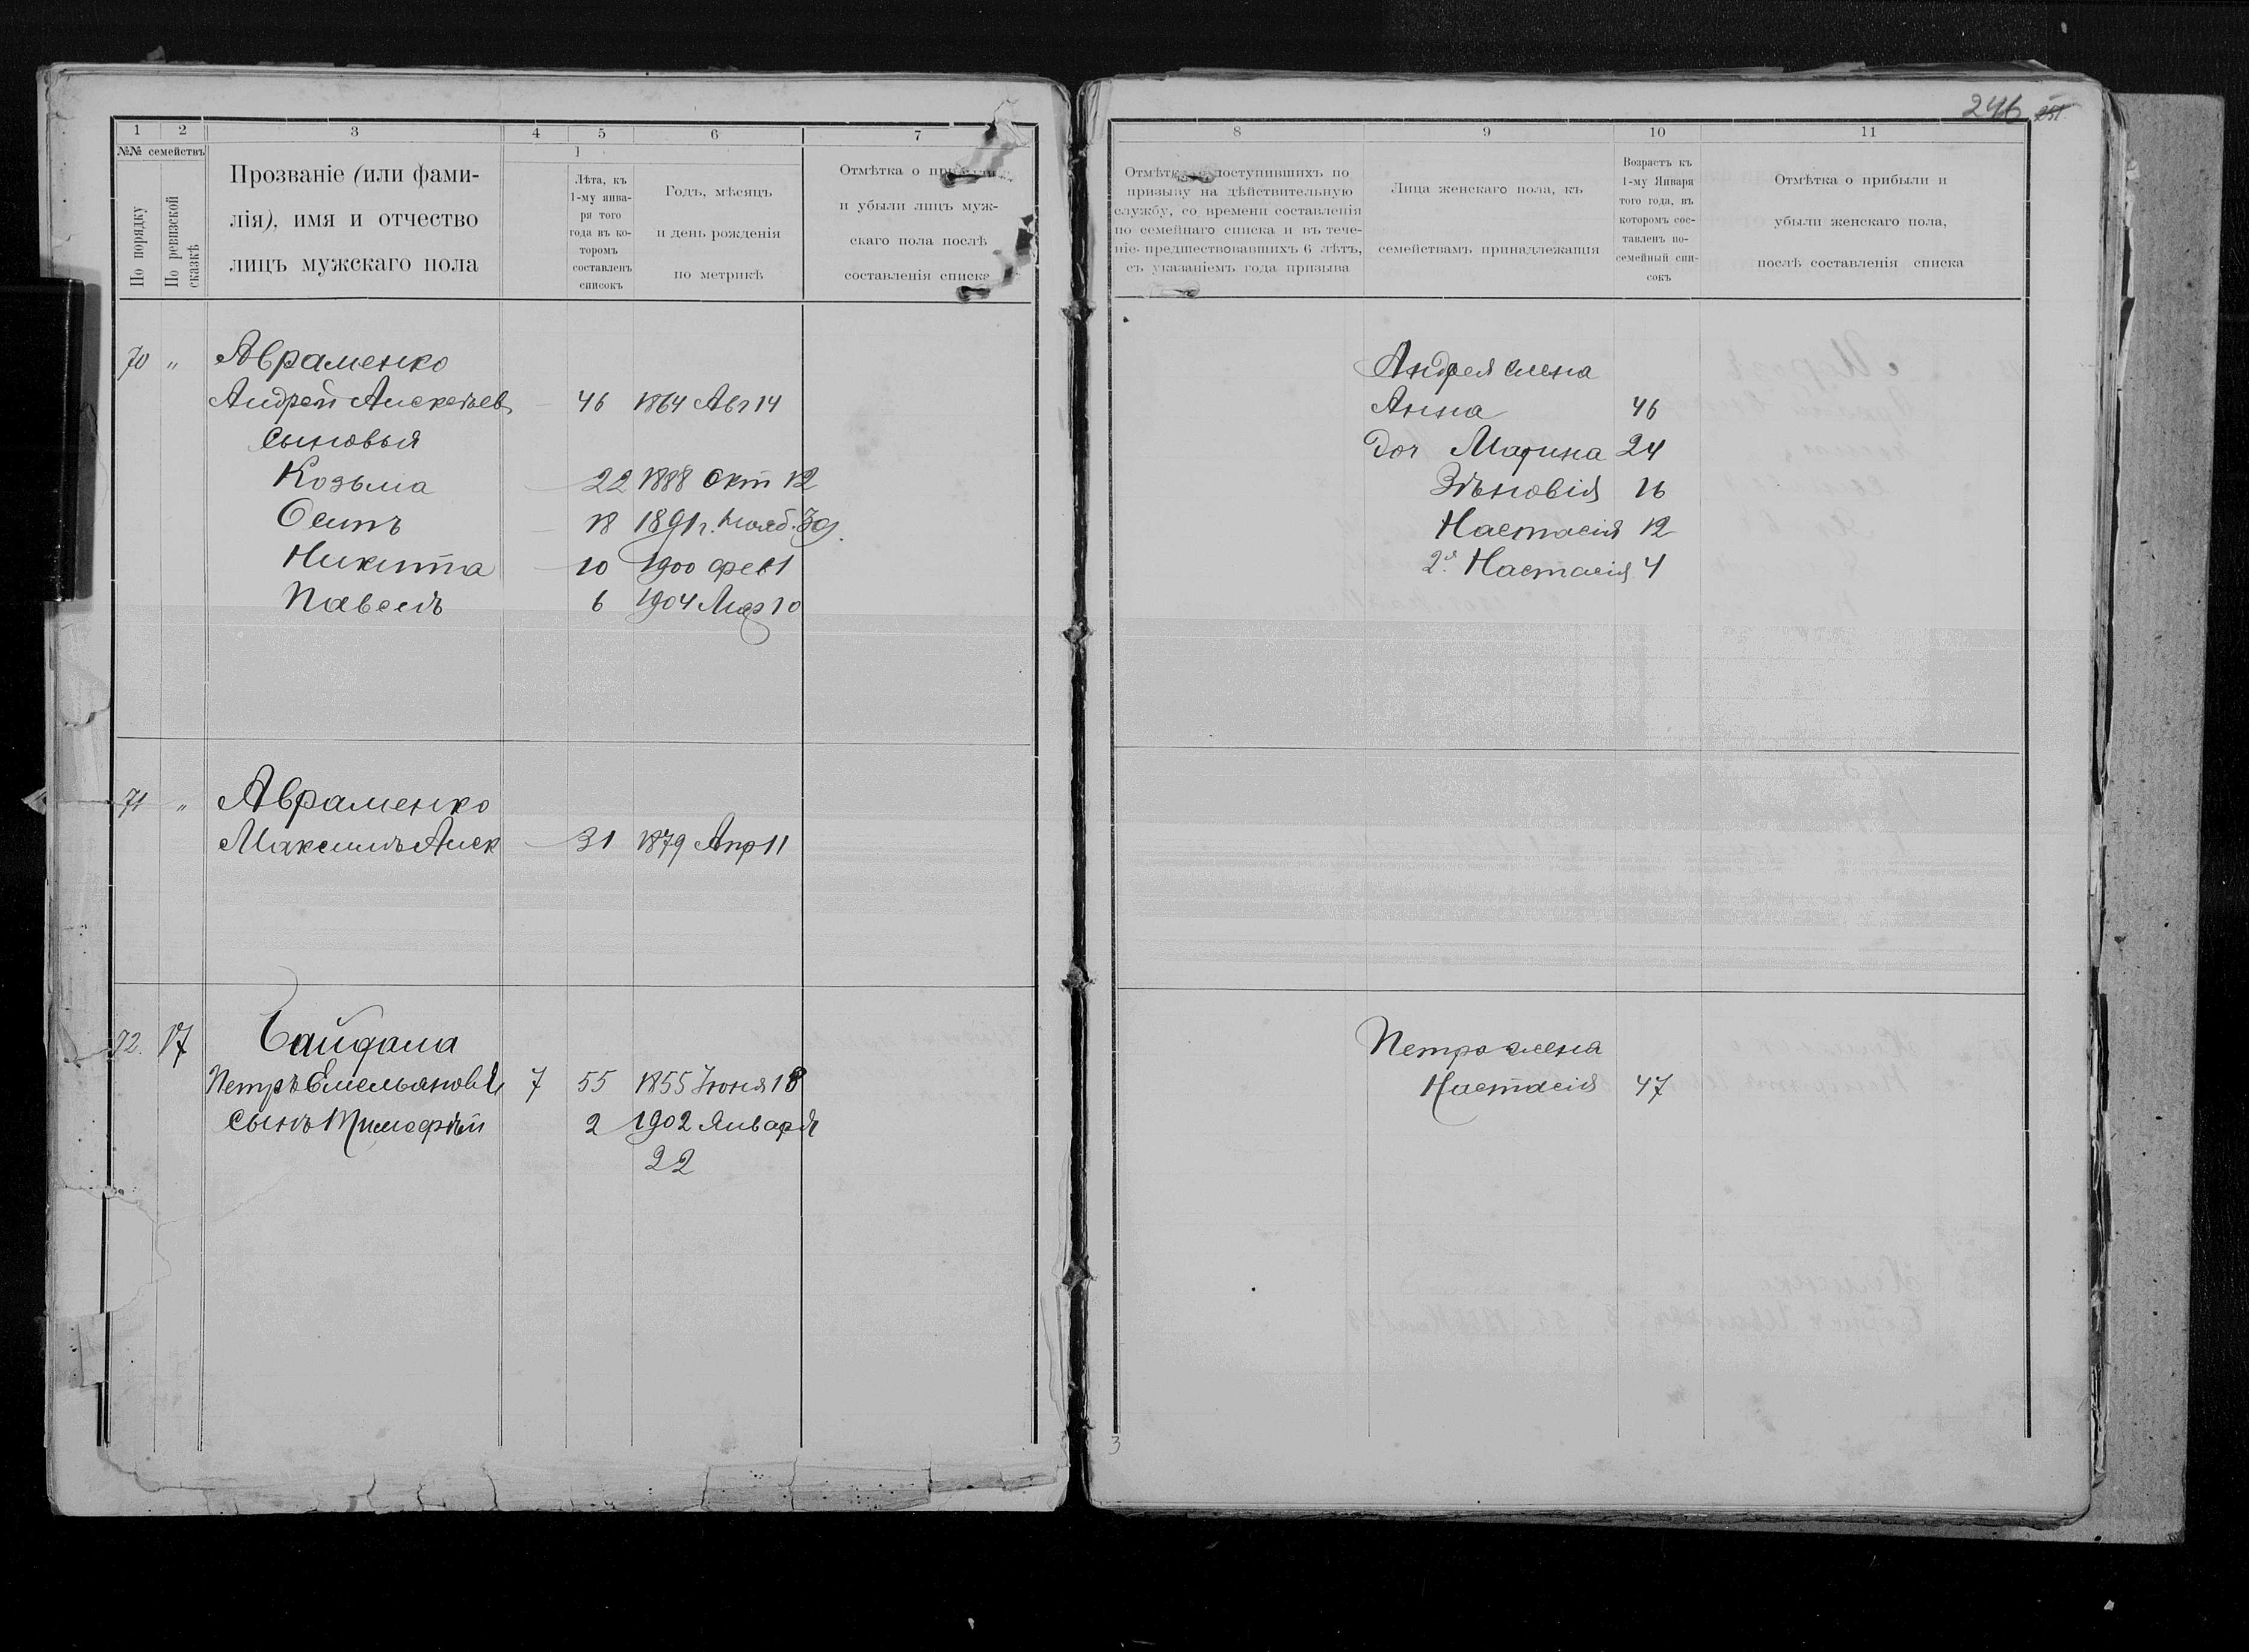 246 251
1 2 3 4 5 6 7
№№ семействъ
По порядку
По ревизской сказкѣ
Прозваніе (или фами-
лія), имя и отчество
лицъ мужскаго пола
1
Лѣта, къ
1-му янва-
ря того
года въ ко-
торомъ
составленъ
списокъ
Годъ, мѣсяцъ
и день рожденія
по метрикѣ
Отмѣтка о
и убыли лицъ муж-
скаго пола послѣ
составленія списка
70 " Авраменко
Андрей Алексѣев 46 1864 Авг 14
Сыновья
Козьма 22 1888 Окт 12
Осипъ 18 1891 г. Нояб. 30
Никита 10 1900 Фев 1
Павелъ 6 1904 Мар 10
71 " Авраменко
Максимъ Алек 31 1879 Апр 11
72. 17 Байдала
Петръ Емельянов 7 55 1855 Іюня 18
Сынъ Тимофѣй 2 1902 Января
22
8 9 10 11
Отмѣтка поступившихъ по
призыву на дѣйствительную
службу, со времени составленія
по семейнаго списка и въ тече-
ніе предшествовавшихъ 6 лѣтъ,
съ указаніемъ года призыва
Лица женскаго пола, къ
семействамъ принадлежащія
Возрастъ къ
1-му Января
того года, въ
которомъ сос-
тавленъ по-
семейный спи-
сокъ
Отмѣтка о прибыли и
убыли женскаго пола,
послѣ составленія списка
Андрея жена
Анна 46
Доч Марина 24
Зѣновія 16
Настасія 12
2я Настасія 4
Петра жена
Настасія 47
3